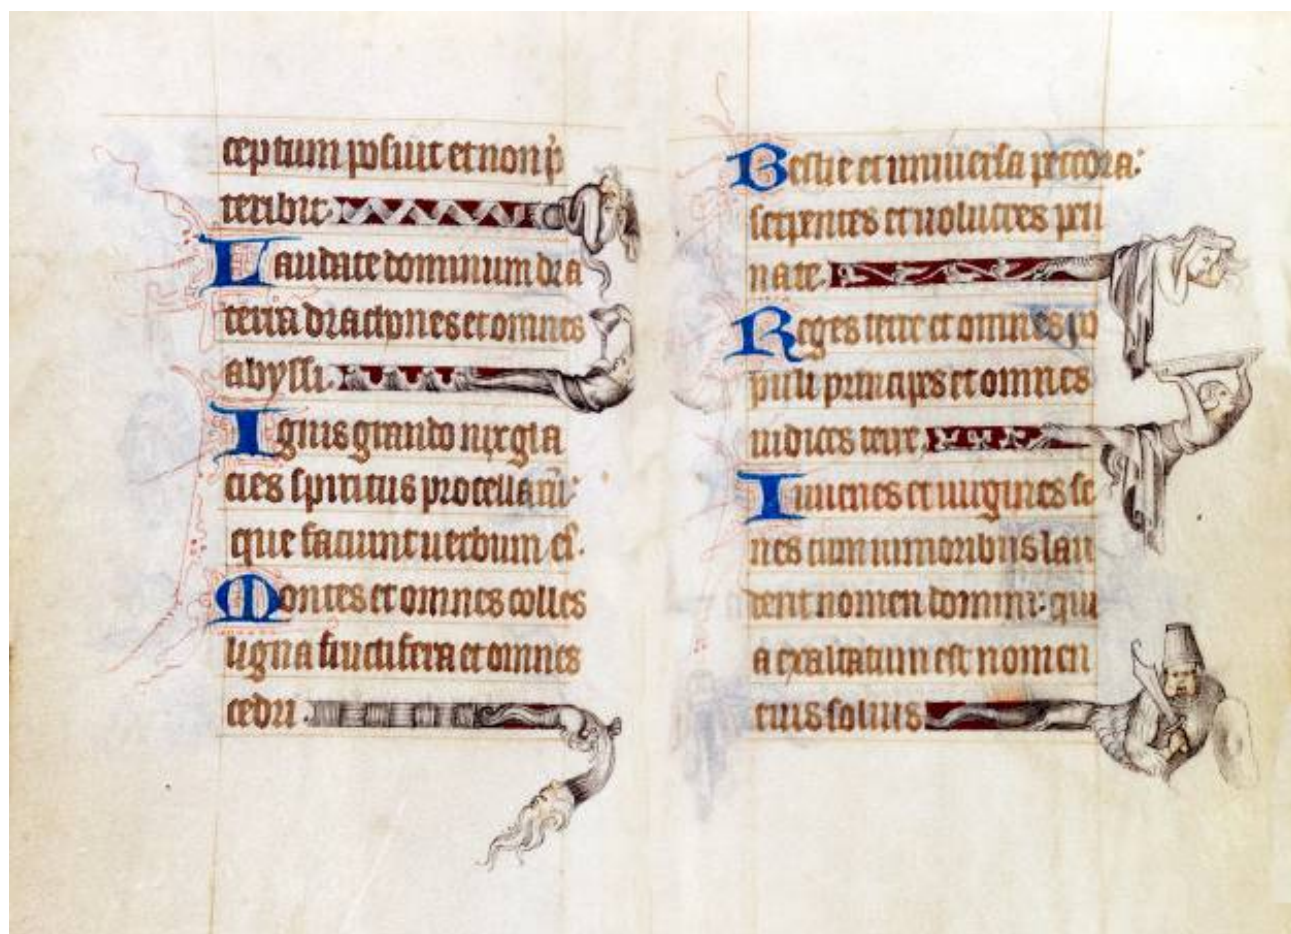 ceptum posuit et non p̄
teribit.
Laudate dominum de a
terra dracones et omnes
abyssi.
Ignis grando nix gla
cies spiritus procellarū:
que faciunt uerbum ei᾽.
Montes et omnes colles
ligna fructifera et omnes
cedri.
Bestie et uniuersa peccora:
serpentes et uolucres pen
nate.
Reges terre et omnes po
puli principes et omnes
iudices terre
Iuuenes et uirgines se
nes cum iunioribus lau
dent nomen domini: qui
a exaltatum est nomen
eius solius